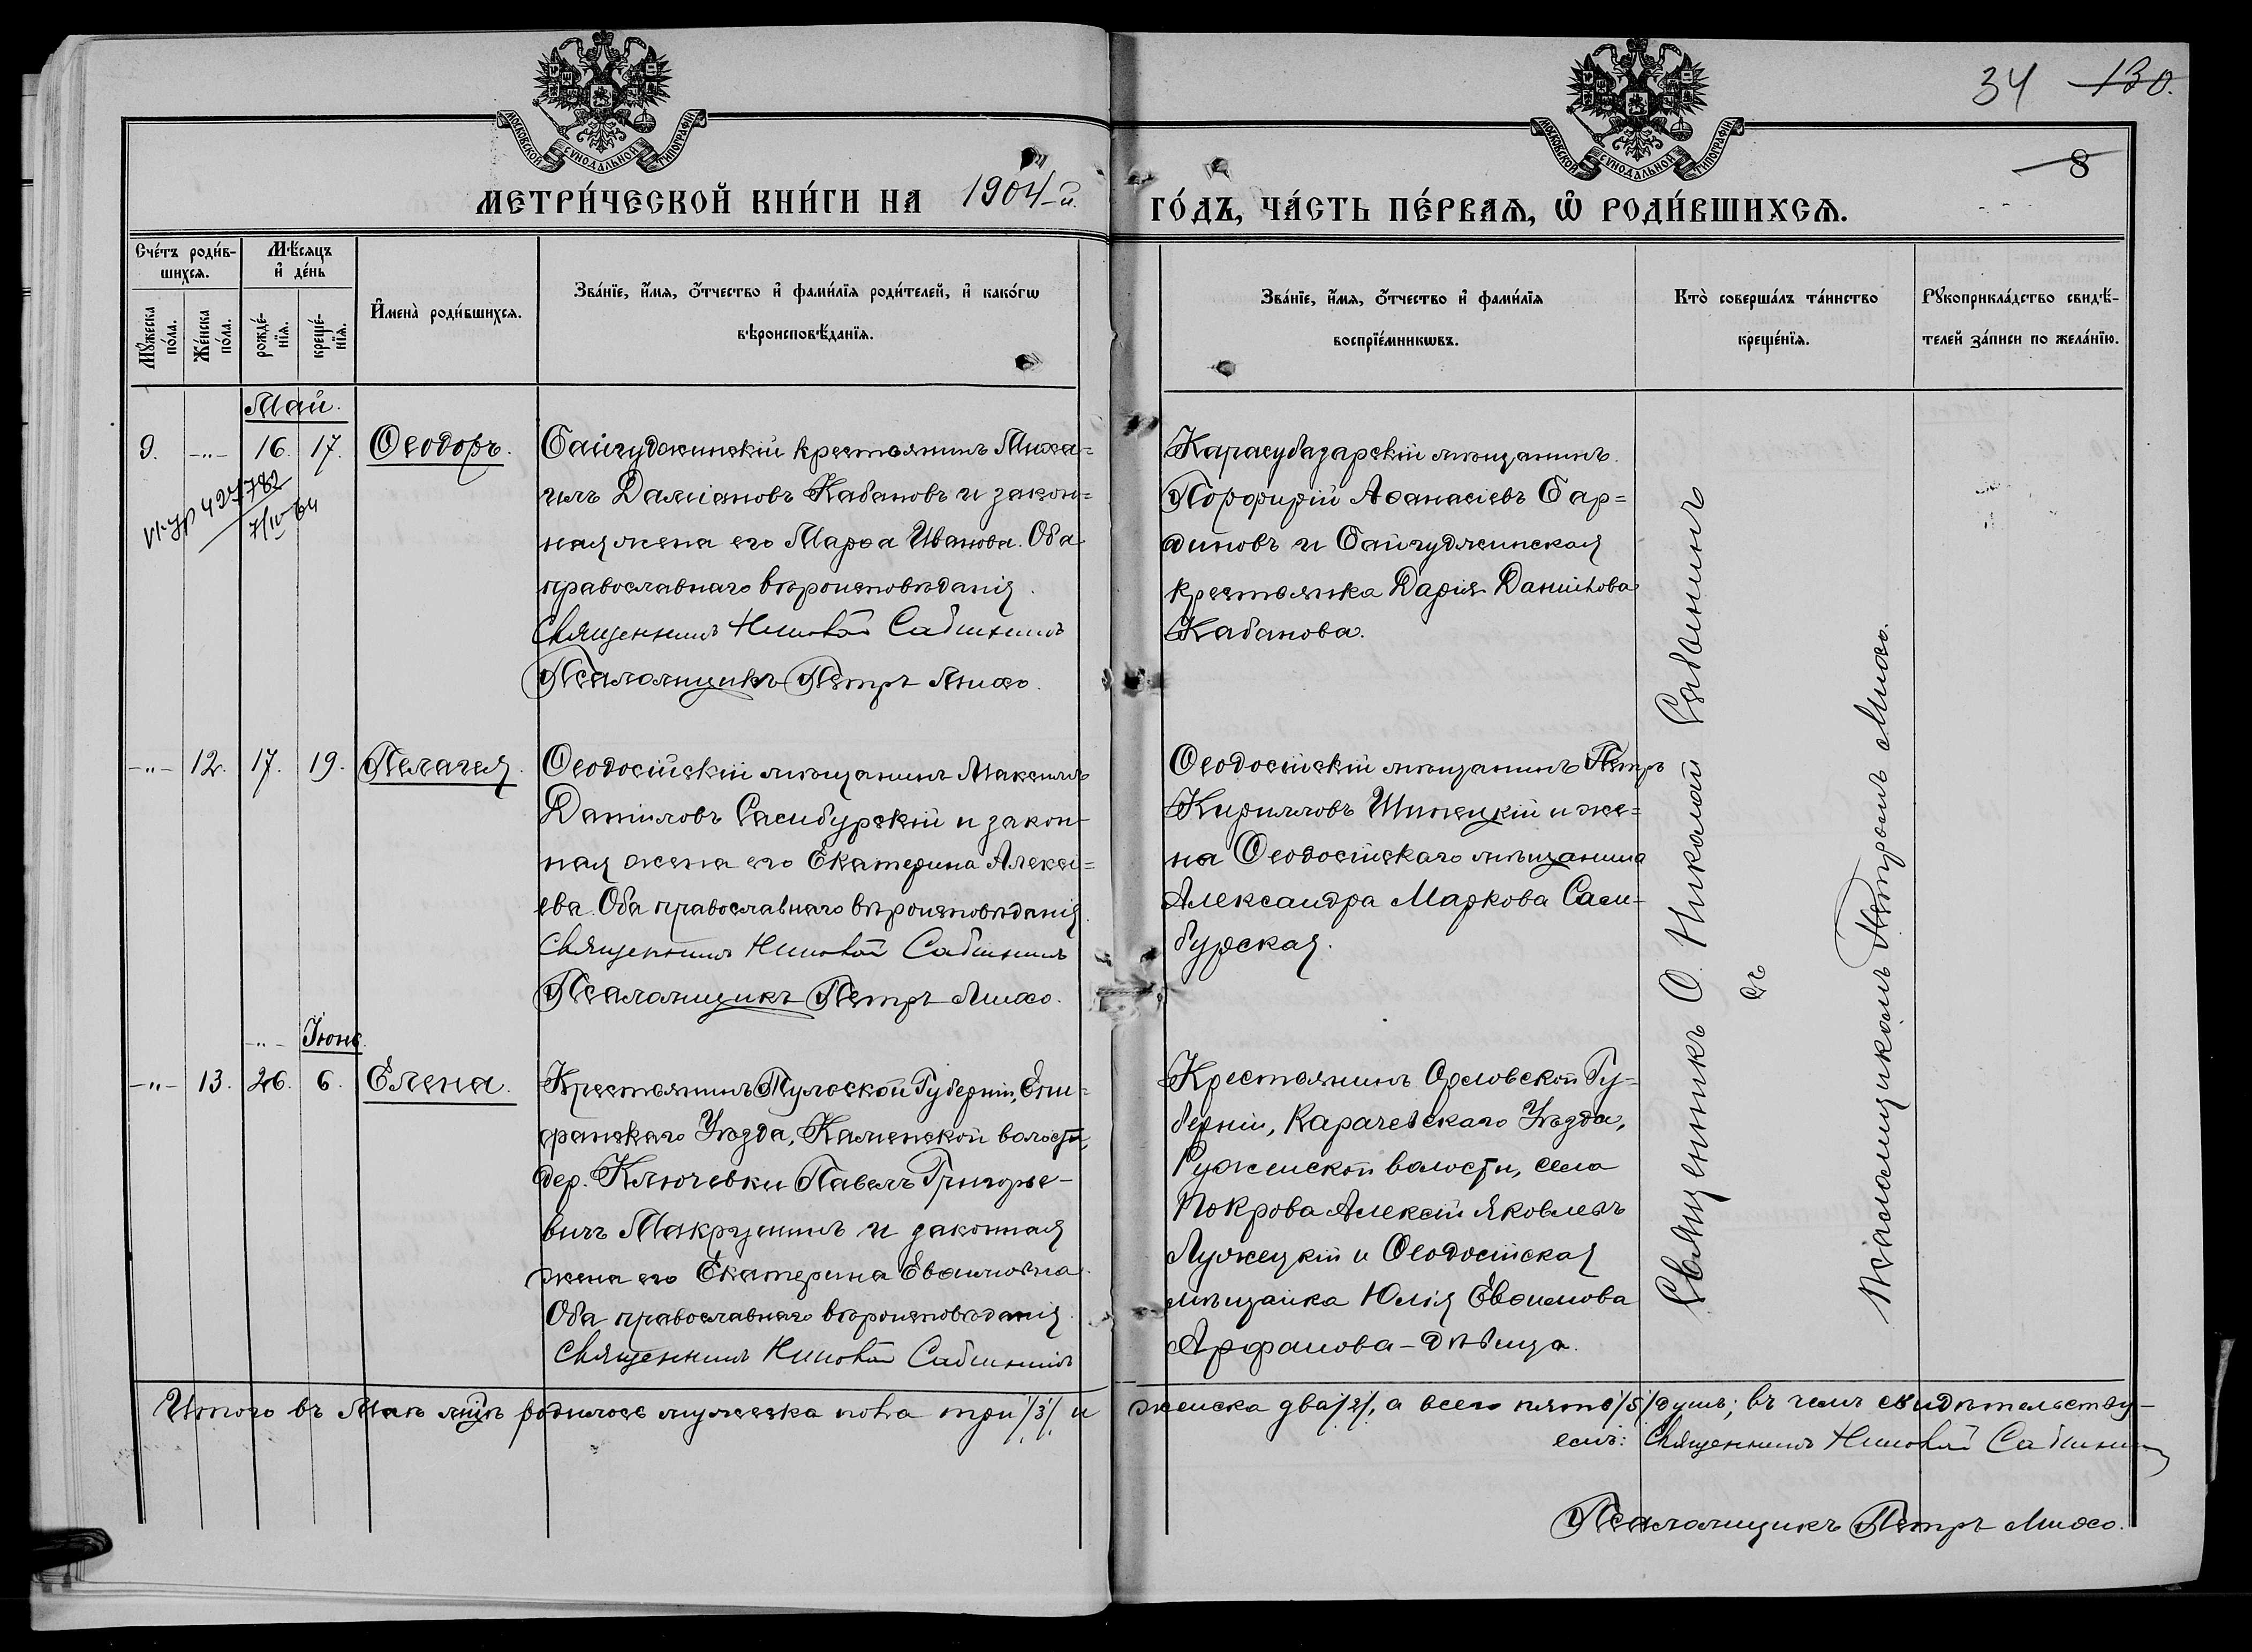 34 130.
8
МОСКОВСКОЙ СѴНОДАЛЬНОЙ ТИПОГРАФІИ
МОСКОВСКОЙ СѴНОДАЛЬНОЙ ТИПОГРАФІИ
МЕТРИ́ЧЕСКОЙ КНИ́ГИ НА 1904-й.
ГО́ДЪ, ЧА́СТЬ ПЕ́РВАѦ, Ѽ РОДИ́ВШИХСѦ.
Сче́тъ роди́в-
шихсѧ.
Мѣ́сяцъ
и҆ де́нь
Мꙋ́жеска
по́ла.
Же́нска
по́ла.
рожде́-
нїѧ.
креще́-
нїѧ.
И҆мена̀ роди́вшихсѧ.
Зва́нїе, и҆́мѧ, ѻ҆́тчество и҆ фами́лїѧ роди́телей, и҆ како́гѡ
вѣроисповѣ́данїѧ.
Зва́нїе, и҆́мѧ, ѻ҆́тчество и҆ фами́лїѧ
воспрїе́мникѡвъ.
Кто̀ соверша́лъ та́инство
креще́нїѧ.
Рꙋкоприкла́дство свидѣ́-
телей за́писи по жела́нїю.
Май.
9. -"- 16. 17. Ѳеодоръ.
427782
7/IV 64
Байгуджинскій крестьянинъ Миха=
илъ Даміановъ Кабановъ и закон=
ная жена его Марѳа Иванова. Оба
православнаго вѣроисповѣданія.
Священникъ Николай Сабининъ
Псаломщикъ Петръ Михо.
Карасубазарскій мѣщанинъ
Порфирій Аѳанасіевъ Бар=
диновъ и Байгуджинская
крестьянка Дарія Даниілова
Кабанова.
-"- 12. 17. 19. Пелагея.
Ѳеодосійскій мѣщанинъ Максимъ
Даніиловъ Сасибурскій и закон-
ная жена его Екатерина Алексі=
ева. Оба православнаго вѣроисповѣданія.
Священникъ Николай Сабининъ
Псаломщикъ Петръ Михо.
Ѳеодосійскій мѣщанинъ Петръ
Кирилловъ Шипецкій и же=
на Ѳеодосійскаго мѣщанина
Александра Маркова Саси-
бурская.
-"- Іюнь.
-"- 13. 26. 6. Елена.
Крестьянинъ Тульской Губерніи, Епи-
фанскаго Уѣзда, Каменской волости,
дер. Ключевки Павелъ Григорье-
вичъ Макрушинъ и законная
жена его Екатерина Евѳимовна.
Оба православнаго вѣроисповѣданія.
Священникъ Николай Сабининъ
Крестьянинъ Орловской Гу-
берніи, Карачевскаго Уѣзда,
Руженской волости, села
Покрова Алексій Яковлевъ
Лужецкій и Ѳеодосійская
мѣщанка Юлія Евѳимова
Арфанова - дѣвица.
Священникъ О. Николай Сабининъ
съ
Псаломщикомъ Петромъ Михо.
Итого въ Маѣ мцѣ родилось мужеска пола три /3/ и
женска два /2/, а всего пять /5/ душъ; въ чемъ свидѣтельству-
емъ: Священникъ Николай Сабининъ
Псаломщикъ Петръ Михо.